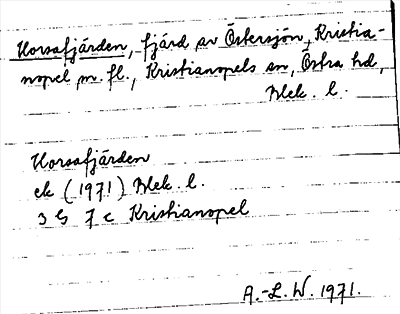 Horsafjärden, fjärd av Östersjön, Kristia-
nopel m. fl., Kristianopels sn, Östra hd,
Blek. l.
Horsafjärden
ek (1971) Blek. l.
3 G 7 c Kristianopel
A.-L. W. 1971.